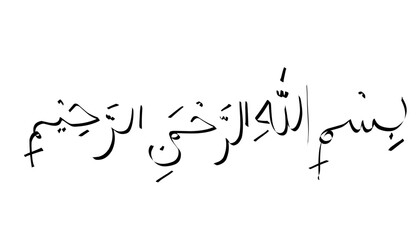 بِسْمِ اللّٰهِ الرَّحْمَنِ الرَّحِيْمِ